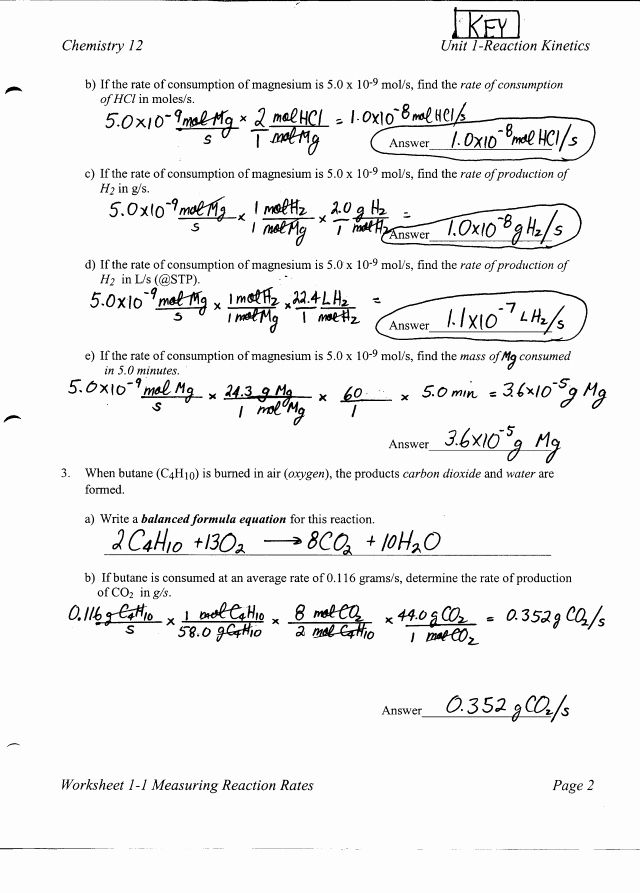 KEY
Chemistry 12 Unit 1-Reaction Kinetics
b) If the rate of consumption of magnesium is 5.0 x 10⁻⁹ mol/s, find the rate of consumption
of HCl in moles/s.
5.0×10⁻⁹ mol Mg / s × 2 mol HCl / 1 mol Mg = 1.0×10⁻⁸ mol HCl/s
Answer 1.0×10⁻⁸ mol HCl/s
c) If the rate of consumption of magnesium is 5.0 x 10⁻⁹ mol/s, find the rate of production of
H₂ in g/s.
5.0×10⁻⁹ mol Mg / s × 1 mol H₂ / 1 mol Mg × 2.0 g H₂ / 1 mol H₂ =
Answer 1.0×10⁻⁸ g H₂/s
d) If the rate of consumption of magnesium is 5.0 x 10⁻⁹ mol/s, find the rate of production of
H₂ in L/s (@STP).
5.0×10⁻⁹ mol Mg / s × 1 mol H₂ / 1 mol Mg × 22.4 L H₂ / 1 mol H₂ =
Answer 1.1×10⁻⁷ L H₂/s
e) If the rate of consumption of magnesium is 5.0 x 10⁻⁹ mol/s, find the mass of Mg consumed
in 5.0 minutes.
5.0×10⁻⁹ mol Mg / s × 24.3 g Mg / 1 mol Mg × 60 / 1 × 5.0 min = 3.6×10⁻⁵ g Mg
Answer 3.6×10⁻⁵ g Mg
3. When butane (C₄H₁₀) is burned in air (oxygen), the products carbon dioxide and water are
formed.
a) Write a balanced formula equation for this reaction.
2C₄H₁₀ + 13O₂ → 8CO₂ + 10H₂O
b) If butane is consumed at an average rate of 0.116 grams/s, determine the rate of production
of CO₂ in g/s.
0.116 g C₄H₁₀ / s × 1 mol C₄H₁₀ / 58.0 g C₄H₁₀ × 8 mol CO₂ / 2 mol C₄H₁₀ × 44.0 g CO₂ / 1 mol CO₂ = 0.352 g CO₂/s
Answer 0.352 g CO₂/s
Worksheet 1-1 Measuring Reaction Rates Page 2